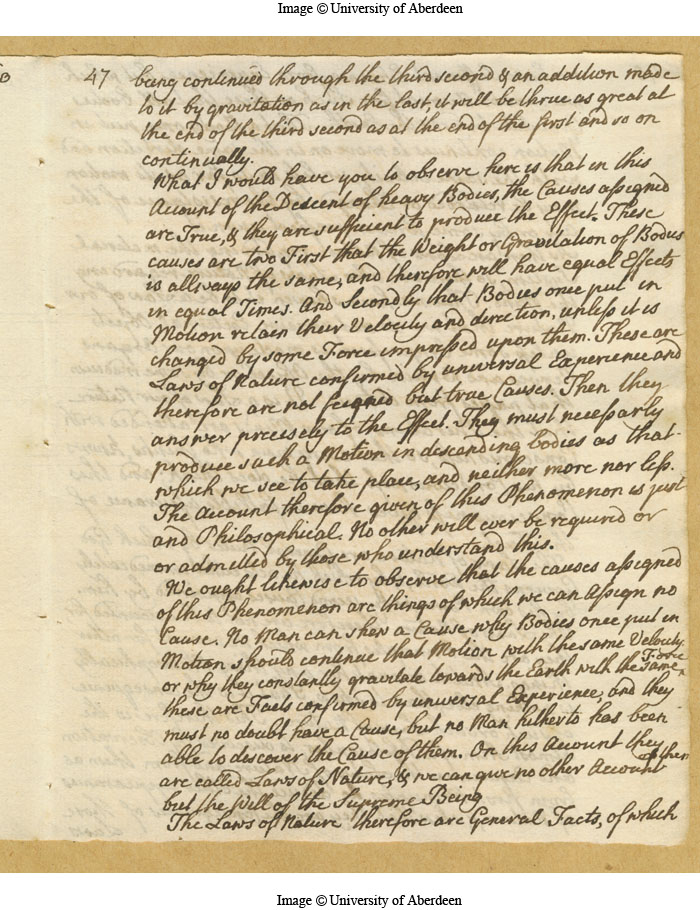 Image © University of Aberdeen
47 being continued through the third second & an addition made
to it by gravitation as in the last, it will be thrice as great at
the end of the third second as at the end of the first and so on
continually.
What I would have you to observe here is that in this
Account of the Descent of heavy Bodies, the Causes assigned
are True, & they are sufficient to produce the Effect. These
causes are two First that the Weight or Gravitation of Bodies
is allways the same, and therefore will have equal Effects
in equal Times. And Secondly that Bodies once put in
Motion retain their Velocity and direction, unless it is
changed by some Force impressed upon them. These are
Laws of Nature confirmed by universal Experience and
therefore are not feigned but true Causes. Then they
answer precisely to the Effect. They must necessarly
produce such a Motion in descending bodies as that
which we see to take place, and neither more nor less.
The Account therefore given of this Phenomenon is just
and Philosophical. No other will ever be required or
or admitted by those who understand this.
We ought likewise to observe that the causes assigned
of this Phenomenon are things of which we can Assign no
Cause. No Man can shew a Cause why Bodies once put in
Motion should continue that Motion with the same Velocity
or why they constantly gravitate towards the Earth with the same Force
these are Facts confirmed by universal Experience, and they
must no doubt have a Cause, but no Man hitherto has been
able to descover the Cause of them. On this Account they
are called Laws of Nature, & we can give no other Account of them
but the Will of the Supreme Being
The Laws of Nature therefore are General Facts, of which
Image © University of Aberdeen